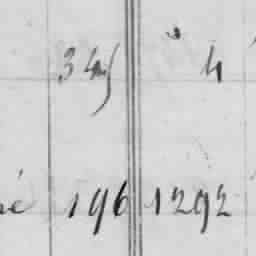 345 4
é 196 1292